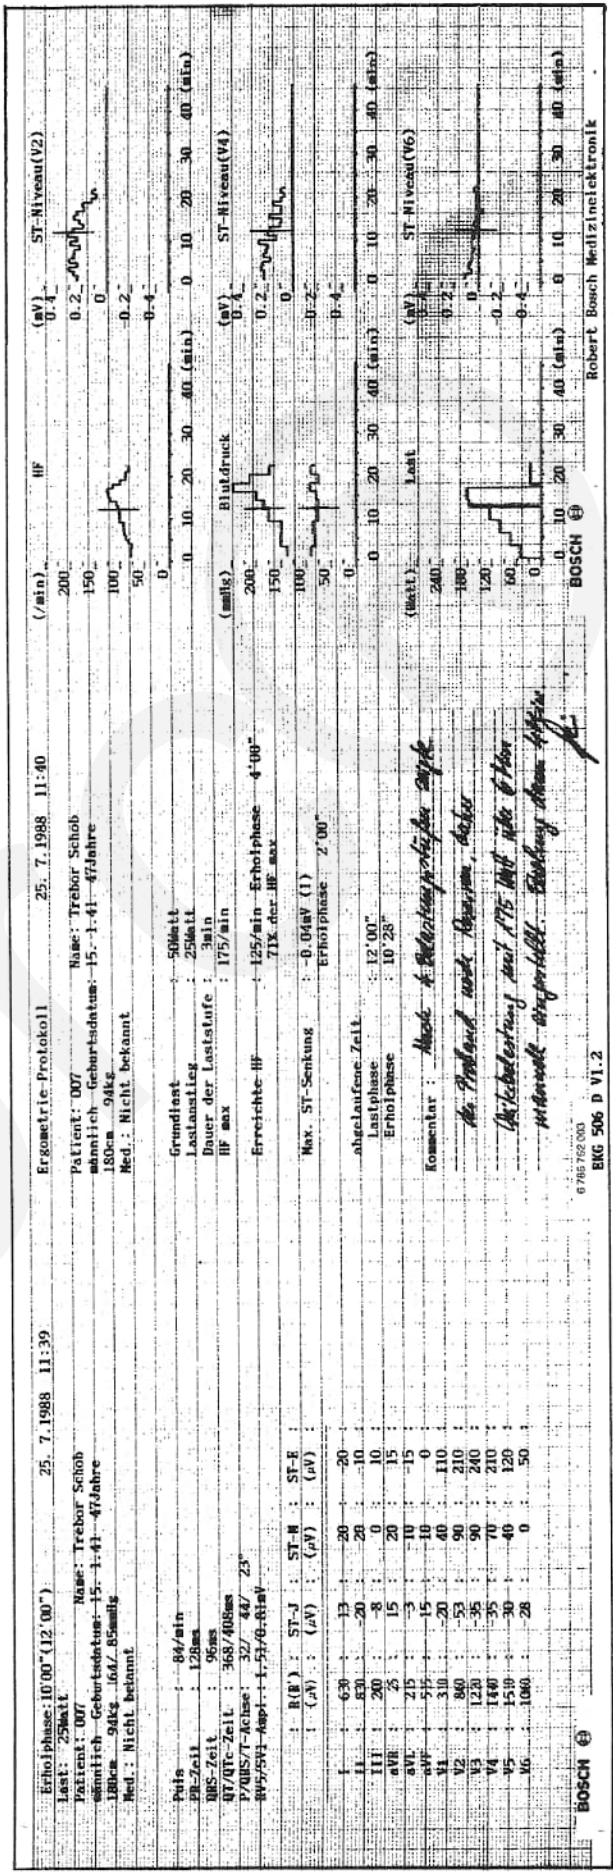 Erholphase:10'00"(12'00") 25. 7.1988 11:39
Last: 25Watt
Patient: 007 Name: Trebor Schob
männlich Geburtsdatum: 15. 1.41 47Jahre
180cm 94kg 164/ 85mmHg
Med.: Nicht bekannt
Puls : 84/min
PR-Zeit : 128ms
QRS-Zeit : 96ms
QT/QTc-Zeit : 368/408ms
P/QRS/T-Achse: 32/ 44/ 23°
RV5/SV1 Ampl.: 1.51/0.81mV
: R(R') : ST-J : ST-M : ST-E :
: (µV) : (µV) : (µV) : (µV) :
I : 630 : 13 : 20 : 20 :
II : 830 : -20 : 20 : 10 :
III : 200 : -8 : 0 : 10 :
aVR : 25 : 15 : 20 : 15 :
aVL : 215 : -3 : -10 : -15 :
aVF : 515 : 15 : 10 : 0 :
V1 : 310 : -20 : 40 : 110 :
V2 : 860 : -53 : 90 : 210 :
V3 : 1220 : -35 : 90 : 240 :
V4 : 1440 : -35 : 70 : 210 :
V5 : 1510 : 30 : 40 : 120 :
V6 : 1080 : -28 : 0 : 50 :
BOSCH
Ergometrie-Protokoll 25. 7.1988 11:40
Patient: 007 Name: Trebor Schob
männlich Geburtsdatum: 15. 1.41 47Jahre
180cm 94kg
Med.: Nicht bekannt
Grundlast : 50Watt
Lastanstieg : 25Watt
Dauer der Laststufe : 3min
HF max : 175/min
Erreichte HF : 125/min Erholphase 4'00"
71% der HF max
Max. ST-Senkung : -0.04mV (I)
Erholphase 2'00"
abgelaufene Zeit
Lastphase : 12'00"
Erholphase : 10'28"
Kommentar : Nach 4 Belastungsstufen zeigte
der Proband noch Reserven, daher
mit 175 Watt über 6 Min
manuell
6 786 762 003
EKG 506 D V1.2
(/min) HF
200
150
100
50
0
0 10 20 30 40 (min)
(mmHg) Blutdruck
200
150
100
50
0
0 10 20 30 40 (min)
(Watt) Last
240
180
120
60
0
0 10 20 30 40 (min)
BOSCH
(mV) ST-Niveau(V2)
0.4
0.2
0
-0.2
-0.4
0 10 20 30 40 (min)
(mV) ST-Niveau(V4)
0.4
0.2
0
-0.2
-0.4
0 10 20 30 40 (min)
(mV) ST-Niveau(V6)
0.4
0.2
0
-0.2
-0.4
0 10 20 30 40 (min)
Robert Bosch Medizinelektronik